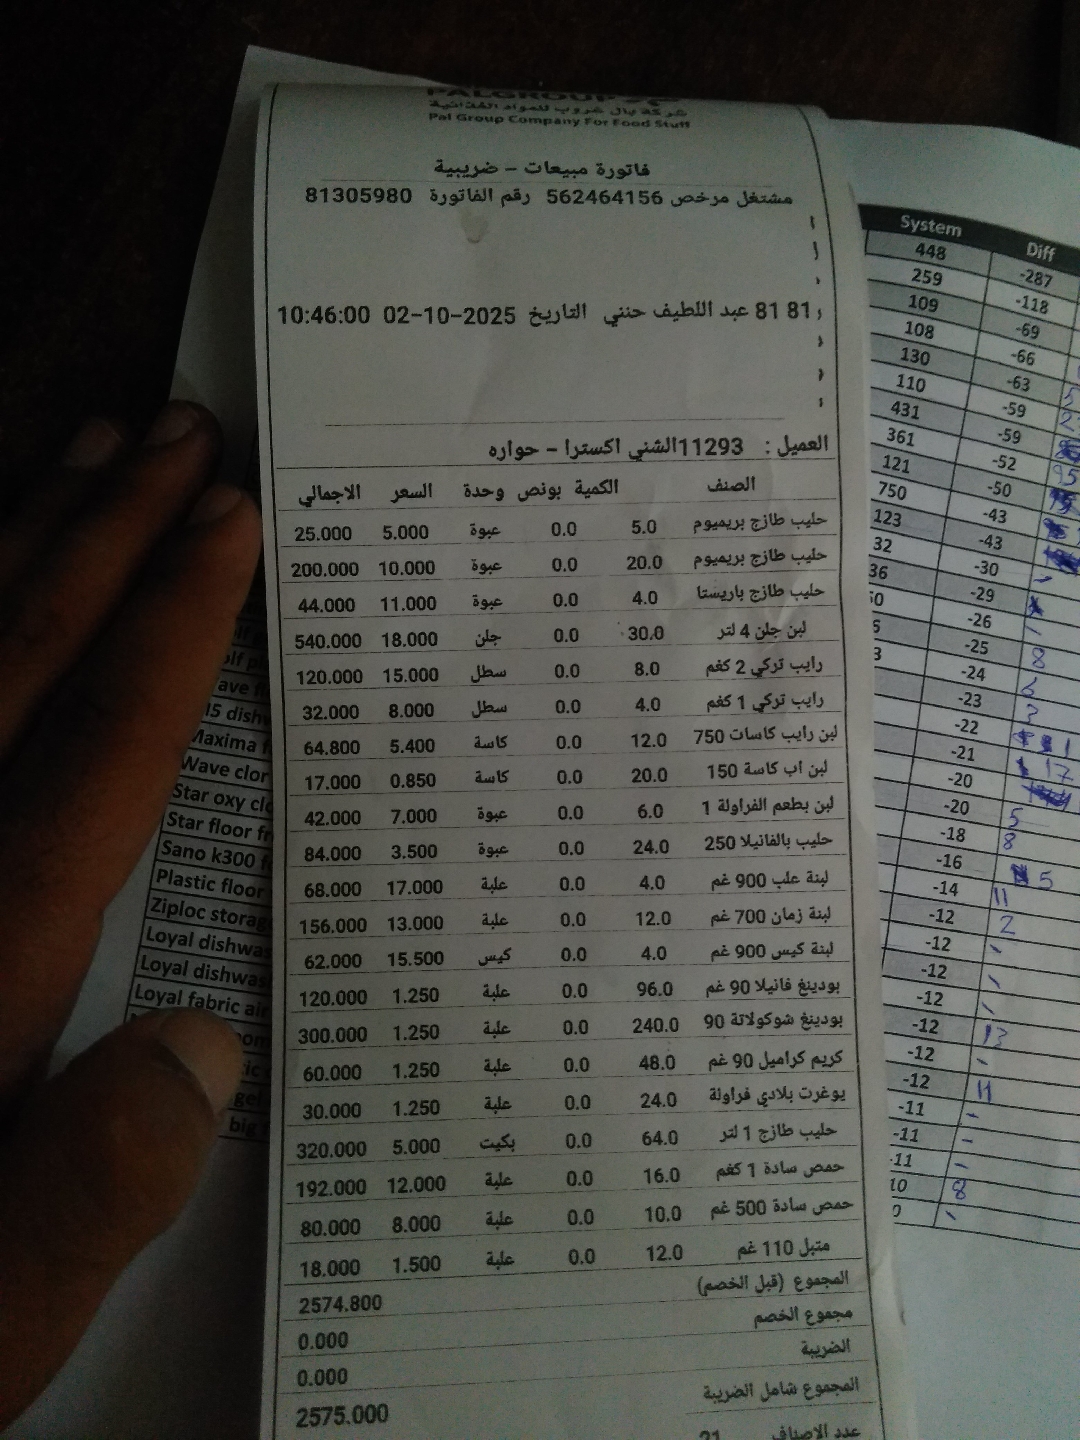 PALGROUP
شركة بال غروب للمواد الغذائية
Pal Group Company For Food Stuff
فاتورة مبيعات - ضريبية
مشتغل مرخص 562464156 رقم الفاتورة 81305980
81 81 عبد اللطيف حنني التاريخ 02-10-2025 10:46:00
العميل : 11293الشني اكسترا - حواره
الصنف الكمية بونص وحدة السعر الاجمالي
حليب طازج بريميوم 5.0 0.0 عبوة 5.000 25.000
حليب طازج بريميوم 20.0 0.0 عبوة 10.000 200.000
حليب طازج باريستا 4.0 0.0 عبوة 11.000 44.000
لبن جلن 4 لتر 30.0 0.0 جلن 18.000 540.000
رايب تركي 2 كغم 8.0 0.0 سطل 15.000 120.000
رايب تركي 1 كغم 4.0 0.0 سطل 8.000 32.000
لبن رايب كاسات 750 12.0 0.0 كاسة 5.400 64.800
لبن اب كاسة 150 20.0 0.0 كاسة 0.850 17.000
لبن بطعم الفراولة 1 6.0 0.0 عبوة 7.000 42.000
حليب بالفانيلا 250 24.0 0.0 عبوة 3.500 84.000
لبنة علب 900 غم 4.0 0.0 علبة 17.000 68.000
لبنة زمان 700 غم 12.0 0.0 علبة 13.000 156.000
لبنة كيس 900 غم 4.0 0.0 كيس 15.500 62.000
بودينغ فانيلا 90 غم 96.0 0.0 علبة 1.250 120.000
بودينغ شوكولاتة 90 240.0 0.0 علبة 1.250 300.000
كريم كراميل 90 غم 48.0 0.0 علبة 1.250 60.000
يوغرت بلادي فراولة 24.0 0.0 علبة 1.250 30.000
حليب طازج 1 لتر 64.0 0.0 بكيت 5.000 320.000
حمص سادة 1 كغم 16.0 0.0 علبة 12.000 192.000
حمص سادة 500 غم 10.0 0.0 علبة 8.000 80.000
متبل 110 غم 12.0 0.0 علبة 1.500 18.000
المجموع (قبل الخصم) 2574.800
مجموع الخصم 0.000
الضريبة 0.000
المجموع شامل الضريبة 2575.000
عدد الاصناف 21
System Diff
448 -287
259 -118
109 -69
108 -66
130 -63
110 -59
431 -59
361 -52
121 -50
750 -43
123 -43
32 -30
36 -29
-26
-25
-24 8
-23 2
-22
-21
-20 17
-20
-18 5
-16 8
-14 5
-12 11
-12 2
-12
-12
-12 13
-12
-12 11
-11
-11
-11
10 8
Maxima
Wave clor
Star oxy clo
Star floor fr
Sano k300
Plastic floor
Ziploc storag
Loyal dishwas
Loyal dishwas
Loyal fabric air
big